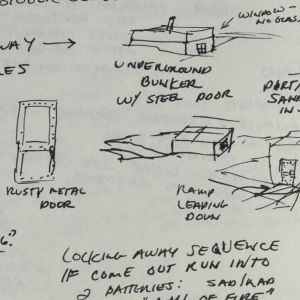 WINDOW—
NO GLASS
WAY →
UNDERGROUND
BUNKER
W/ STEEL DOOR
SAND
IN
RUSTY METAL
DOOR
RAMP
LEADING
DOWN
LOCKING AWAY SEQUENCE
IF COME OUT RUN INTO
2 BATTERIES: SAD/RAD
OF FIRE"